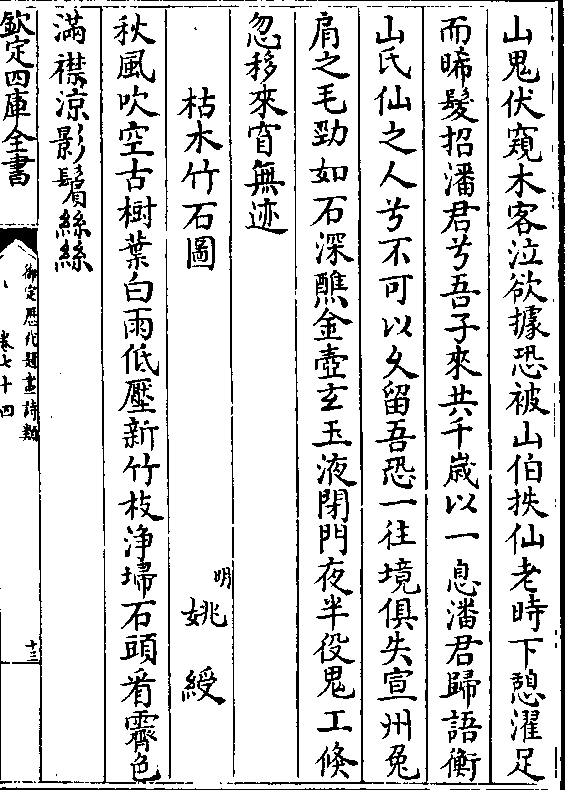 山鬼伏窺木客泣欲據恐被山伯抶仙老時下憩濯足
而晞髮招潘君兮吾子來共千歲以一息潘君歸語衡
山氏仙之人兮不可以久留吾恐一往境俱失宣州兔
肩之毛勁如石深醮金壺玄玉液閉門夜半役鬼工倐
忽移來窅無迹
枯木竹石圖
明姚綬
秋風吹空古樹葉白雨低壓新竹枝浄埽石頭看霽色
滿襟涼影鬢絲絲
欽定四庫全書
御定歷代題畫詩類
卷七十四
十三